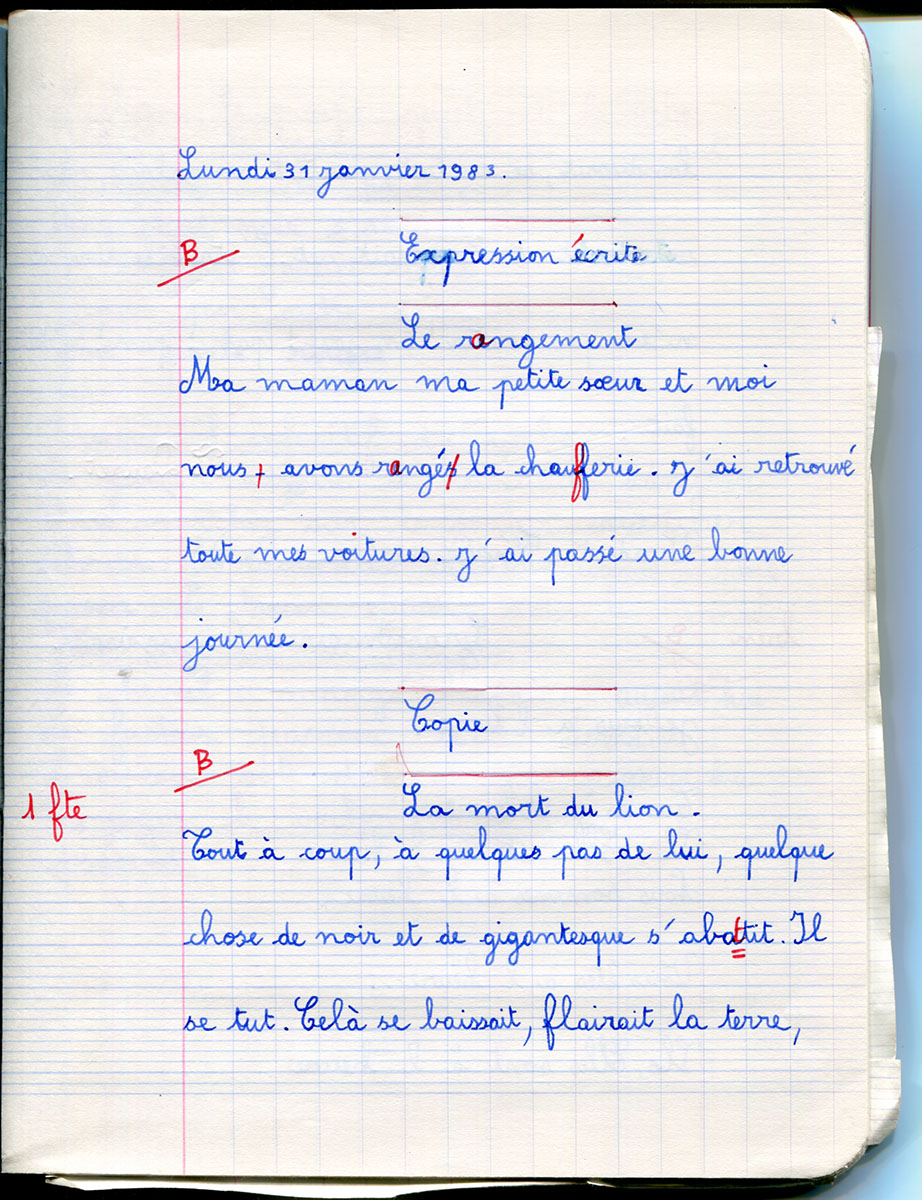 Lundi 31 janvier 1983.
B
Expression écrite
Le rangement
Ma maman ma petite sœur et moi
nous avons rangés la chaufferie. J'ai retrouvé
toute mes voitures. J'ai passé une bonne
journée.
Copie
B
1 fte
La mort du lion.
Tout à coup, à quelques pas de lui, quelque
chose de noir et de gigantesque s'abattit. Il
se tut. Celà se baissait, flairait la terre,